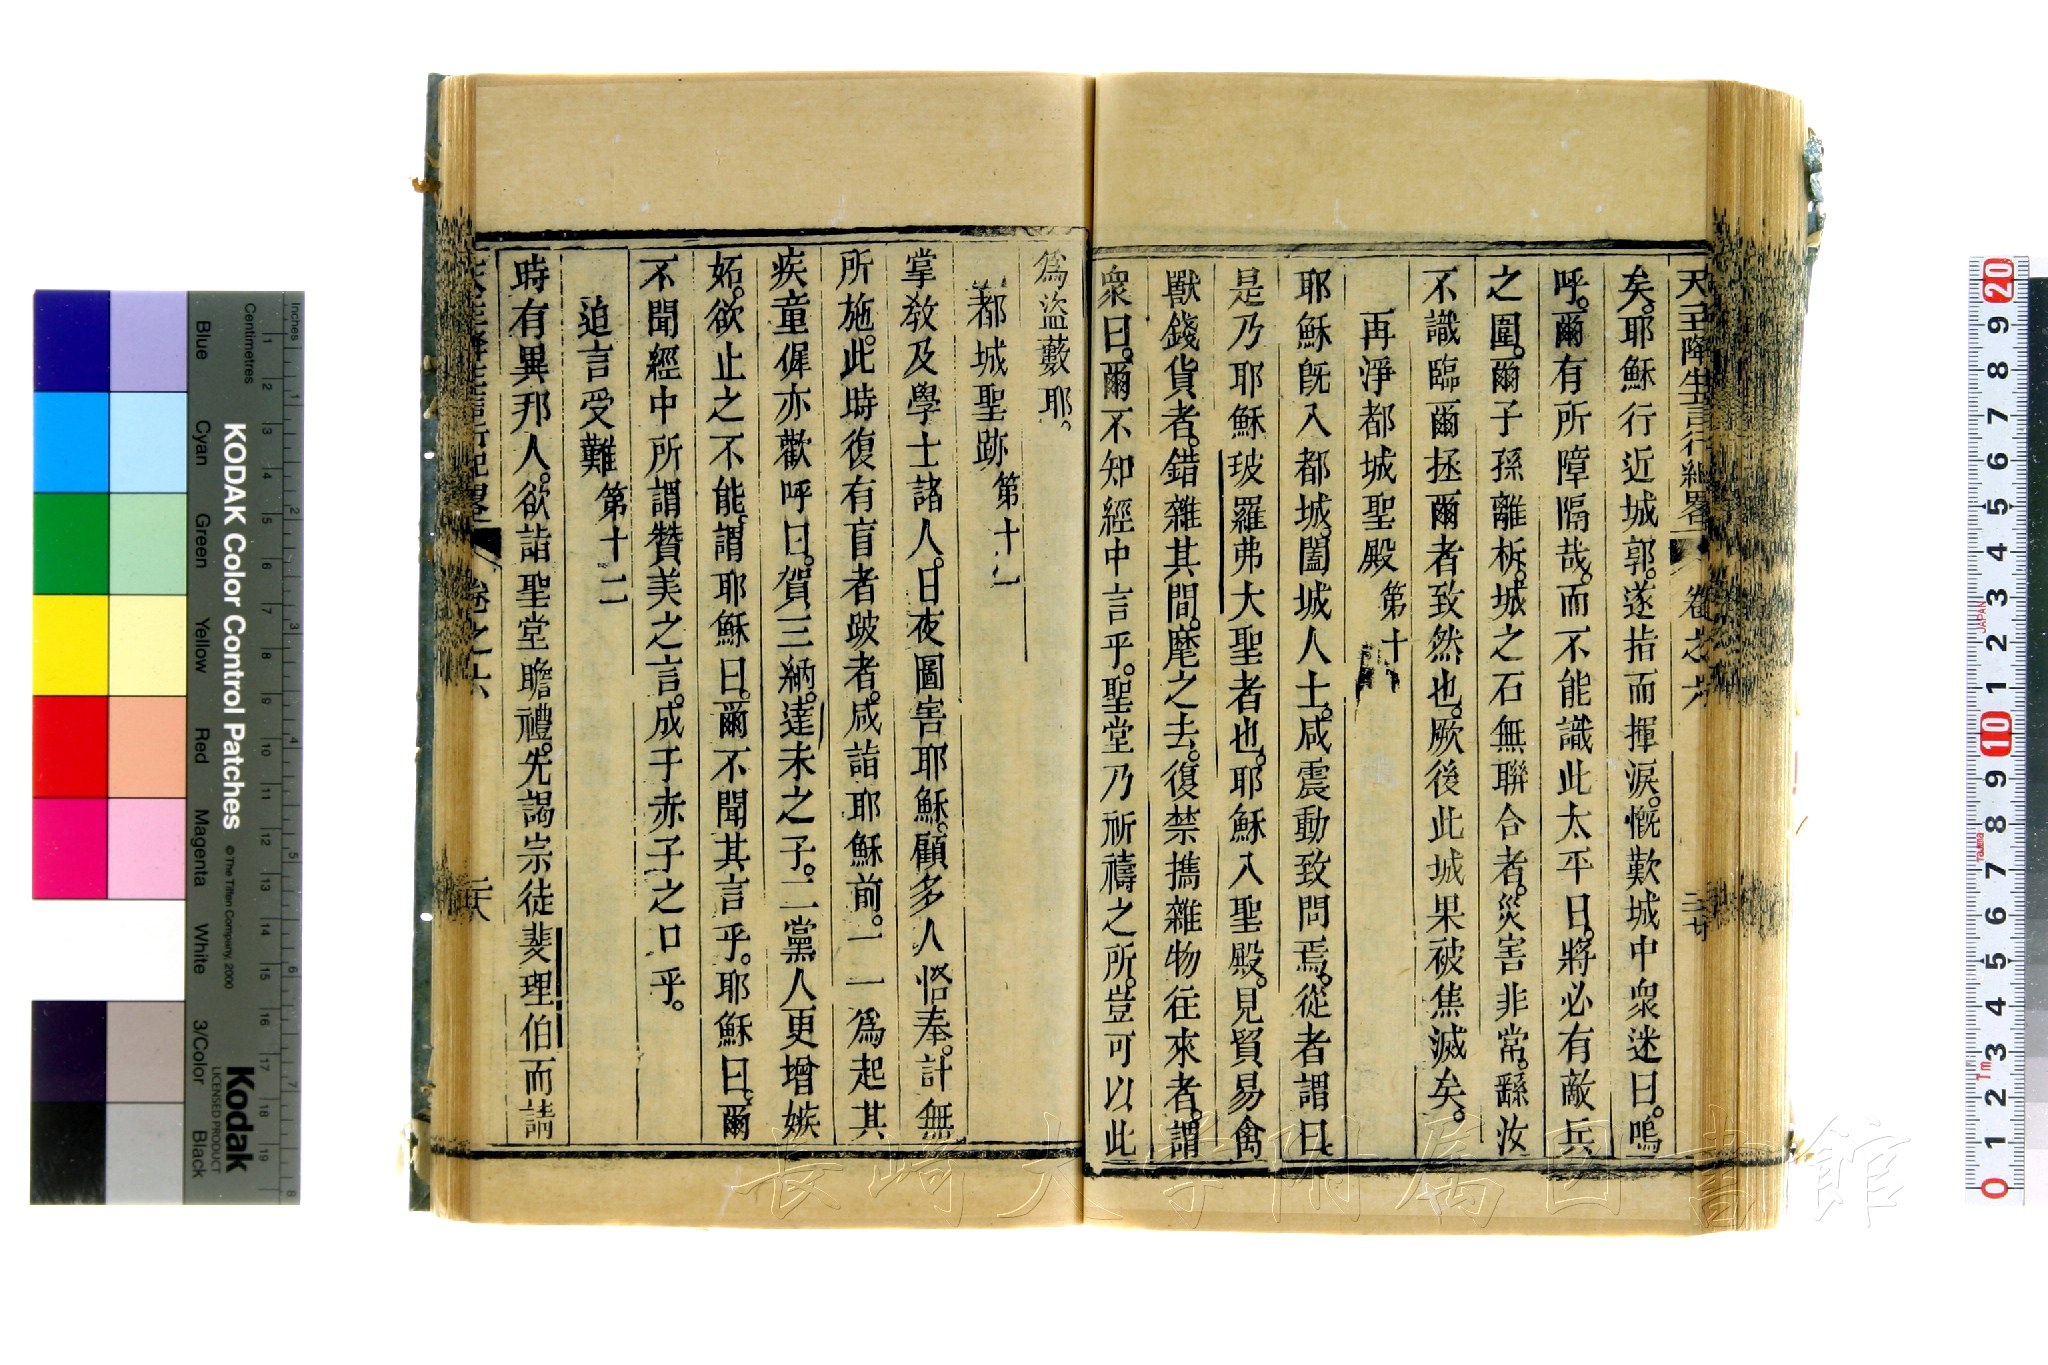 天主降生言行紀畧 卷之六
矣。耶穌行近城郭。遂指而揮淚。慨歎城中衆迷曰。嗚
呼。爾有所障隔哉。而不能識此太平日。將必有敵兵
之圍。爾子孫離析。城之石無聯合者。災害非常。繇汝
不識臨爾拯爾者致然也。厥後此城果被焦滅矣。
再淨都城聖殿 第十
耶穌旣入都城。闔城人士。咸震動致問焉。從者謂曰
是乃耶穌玻羅弗大聖者也。耶穌入聖殿。見貿易禽
獸錢貨者。錯雜其間。麾之去。復禁攜雜物往來者。謂
衆曰。爾不知經中言乎。聖堂乃祈禱之所。豈可以此
爲盜藪耶。
都城聖跡 第十一
掌敎及學士諸人。日夜圖害耶穌。顧多人恪奉。計無
所施。此時復有盲者跛者。咸詣耶穌前。一一爲起其
疾童儕亦歡呼曰。賀三納。達未之子。二黨人更增嫉
妬。欲止之不能。謂耶穌曰。爾不聞其言乎。耶穌曰。爾
不聞經中所謂贊美之言。成于赤子之口乎。
迫言受難 第十二
時有異邦人。欲詣聖堂瞻禮。先謁宗徒斐理伯而請
卷之六
KODAK Color Control Patches
© The Tiffen Company, 2000
Kodak
LICENSED PRODUCT
Inches
Centimetres
Blue
Cyan
Green
Yellow
Red
Magenta
White
3/Color
Black
長崎大学附属図書館
JAPAN